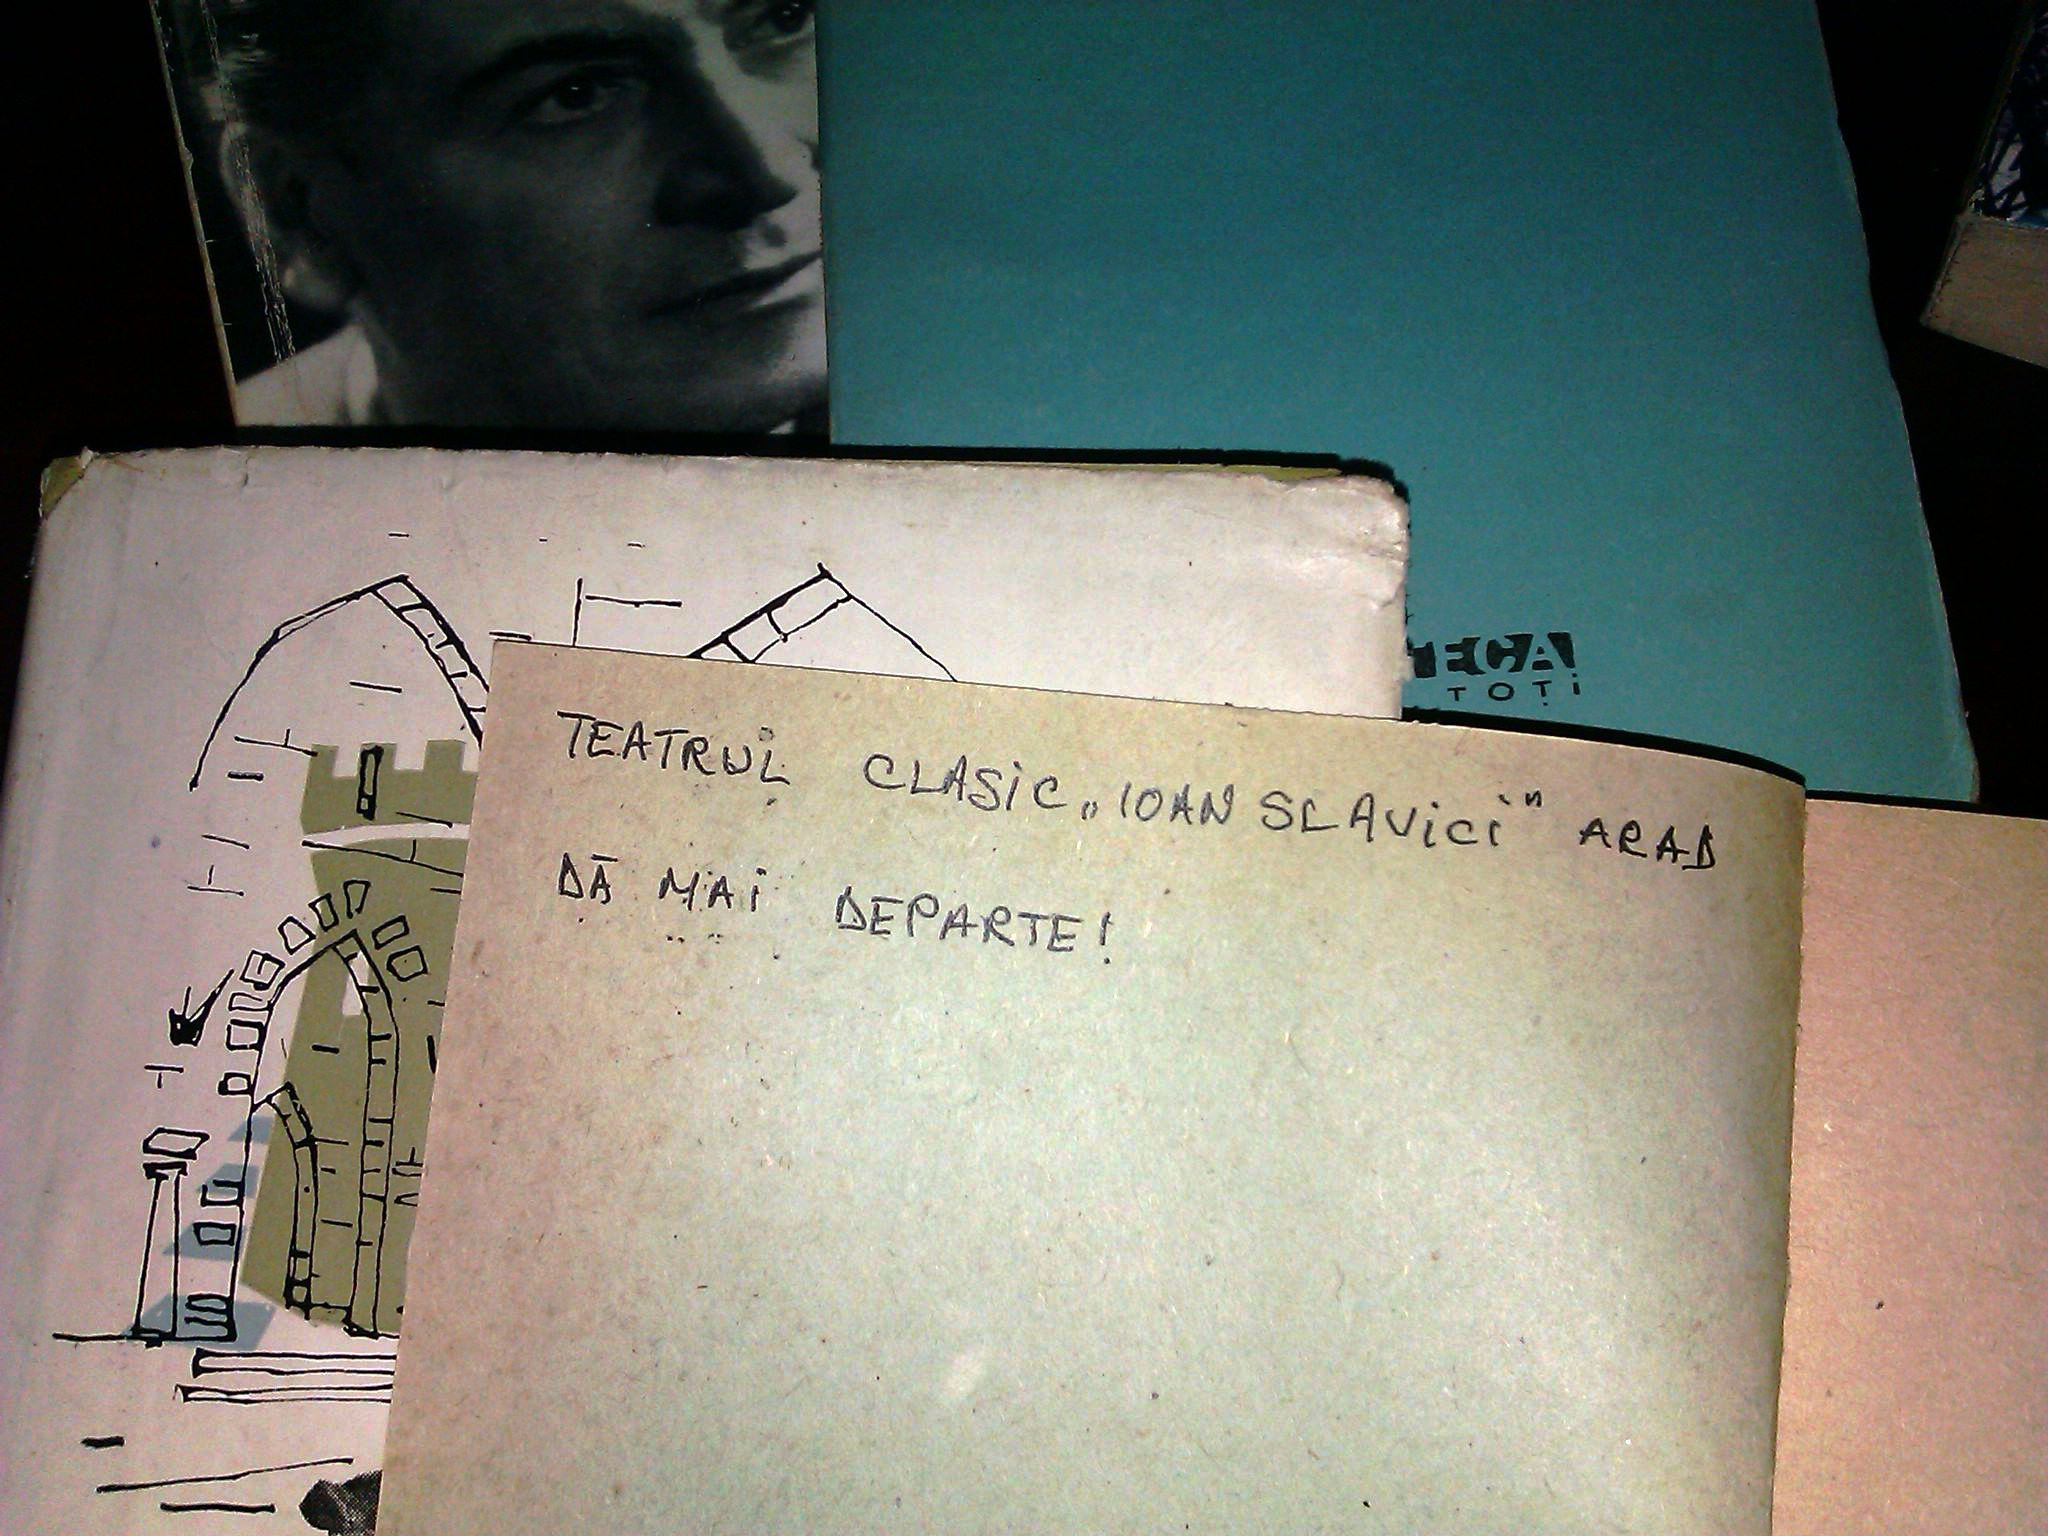 TECA
TOȚI
TEATRUL CLASIC „IOAN SLAVICI" ARAD
DĂ MAI DEPARTE!